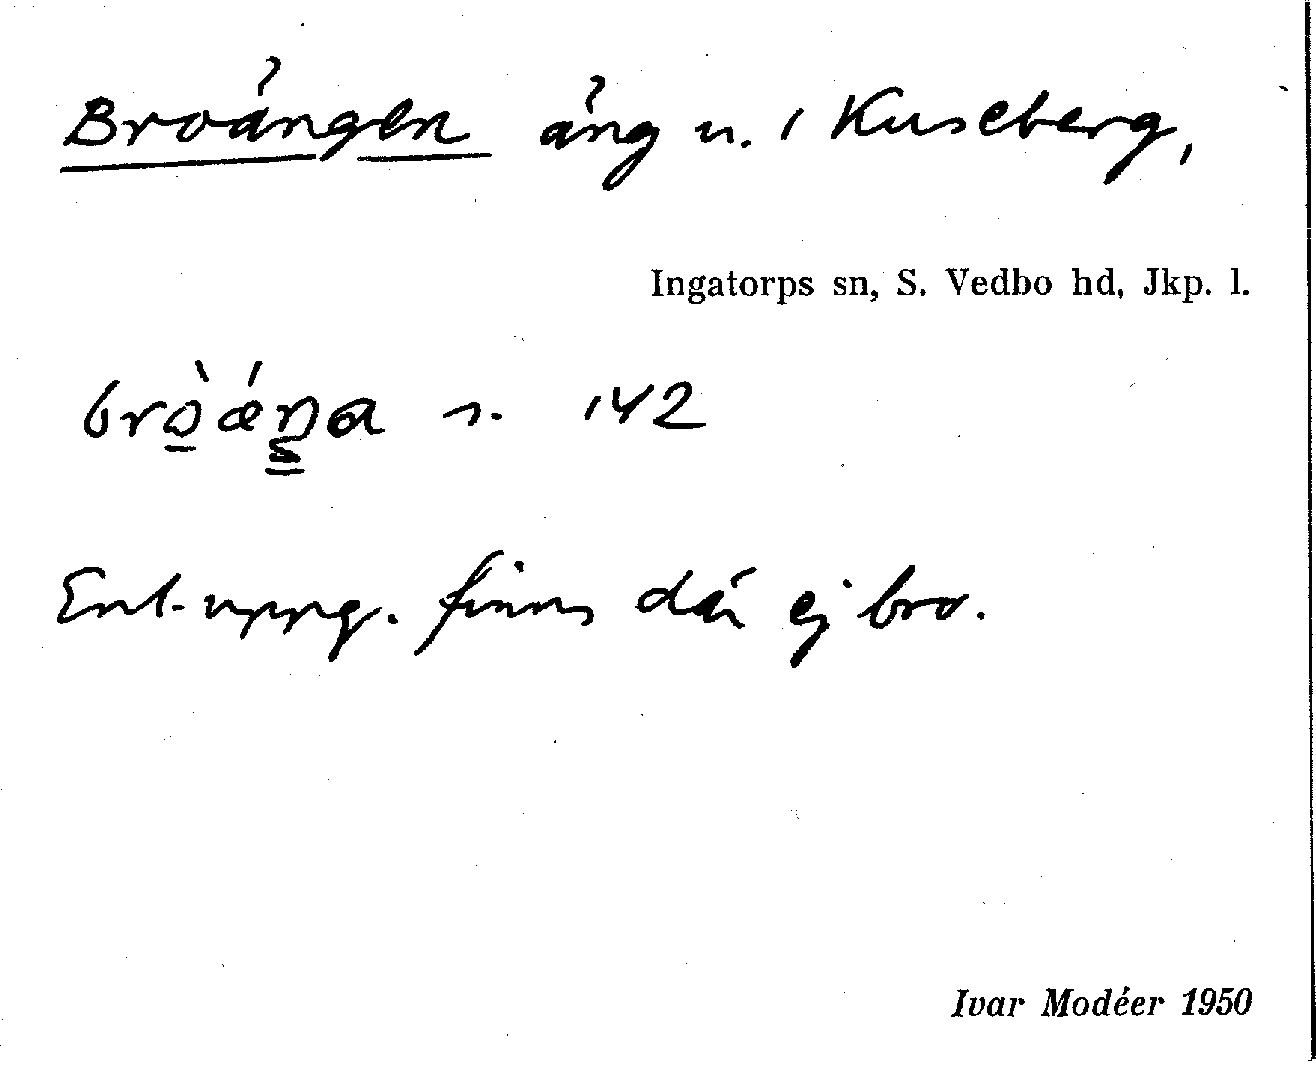 Broängen äng u. / Kuseberg,
Ingatorps sn, S. Vedbo hd, Jkp. l.
s. 142
Enl. uppg. finns där ej bro.
Ivar Modéer 1950